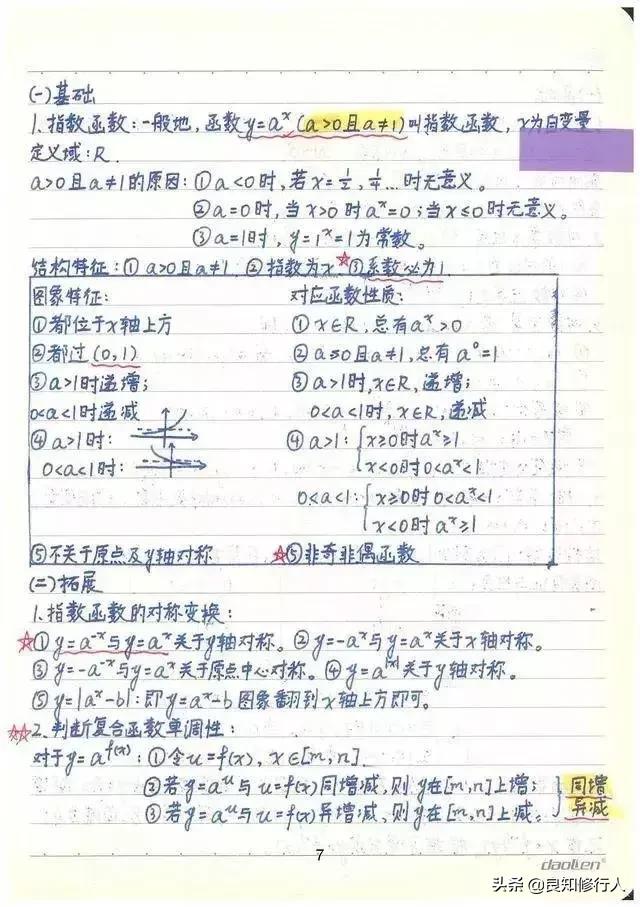 (一)基础
1.指数函数:一般地,函数y=aˣ(a>0且a≠1)叫指数函数,x为自变量,
定义域:R.
a>0且a≠1的原因:①a<0时,若x=1/2,1/4…时无意义。
②a=0时,当x>0时aˣ=0;当x≤0时无意义。
③a=1时,y=1ˣ=1为常数。
结构特征:①a>0且a≠1 ②指数为x ☆③系数必为1
图象特征: 对应函数性质:
①都位于x轴上方 ①x∈R,总有aˣ>0
②都过(0,1) ②a>0且a≠1,总有a⁰=1
③a>1时递增; ③a>1时,x∈R,递增;
0<a<1时递减 0<a<1时,x∈R,递减
④a>1时: ④a>1:{x≥0时aˣ≥1
0<a<1时: x<0时0<aˣ<1
0<a<1:{x≥0时0<aˣ<1
x<0时aˣ≥1
⑤不关于原点及y轴对称 ☆⑤非奇非偶函数
(二)拓展
1.指数函数的对称变换:
☆①y=a⁻ˣ与y=aˣ关于y轴对称。②y=-aˣ与y=aˣ关于x轴对称。
③y=-a⁻ˣ与y=aˣ关于原点中心对称。④y=a^|x|关于y轴对称。
⑤y=|aˣ-b|:即y=aˣ-b图象翻到x轴上方即可。
☆☆2.判断复合函数单调性:
对于y=a^f(x):①令u=f(x),x∈[m,n]
②若y=aᵘ与u=f(x)同增减,则y在[m,n]上增; }同增
③若y=aᵘ与u=f(x)异增减,则y在[m,n]上减。 异减
7
daolen
头条@良知修行人